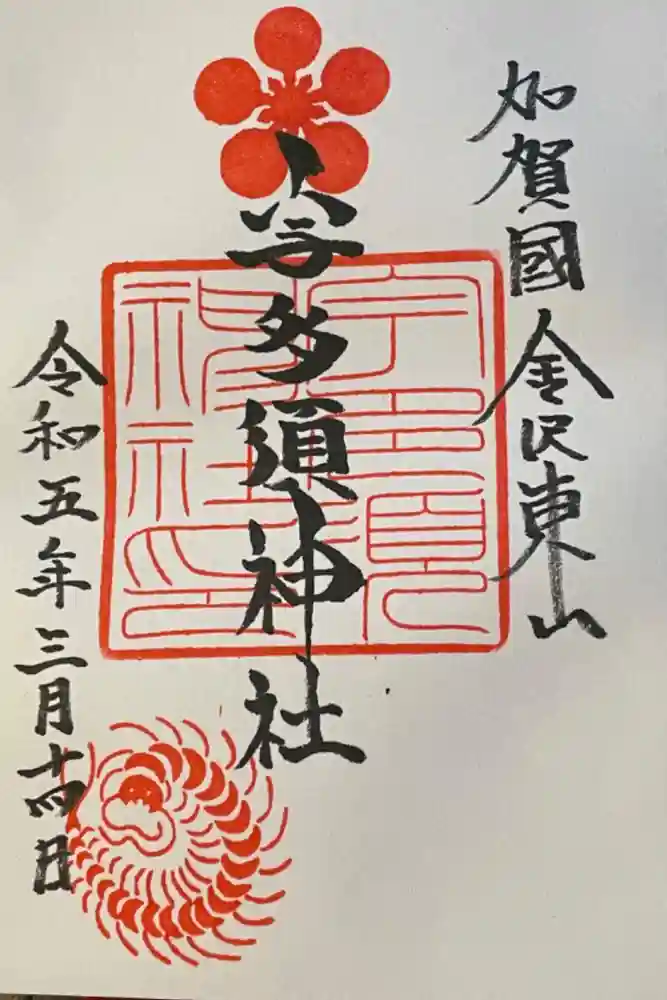 加賀國金沢東山
宇多須神社
宇多須神社印
令和五年三月十四日